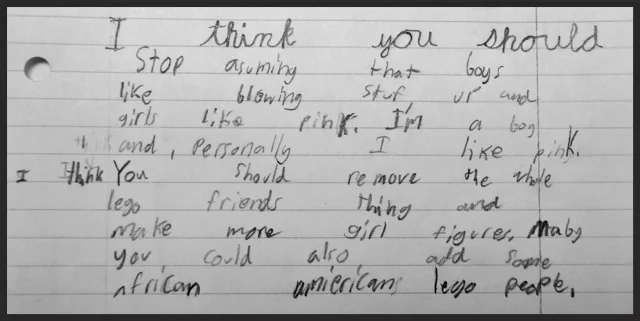 I think you should
Stop asuming that boys
like blowing stuf up and
girls like pink. I'm a boy
and, Personally I like pink.
I think You should remove the whole
lego friends thing and
make more girl figures. Maby
you could also, add some
african americans lego people.